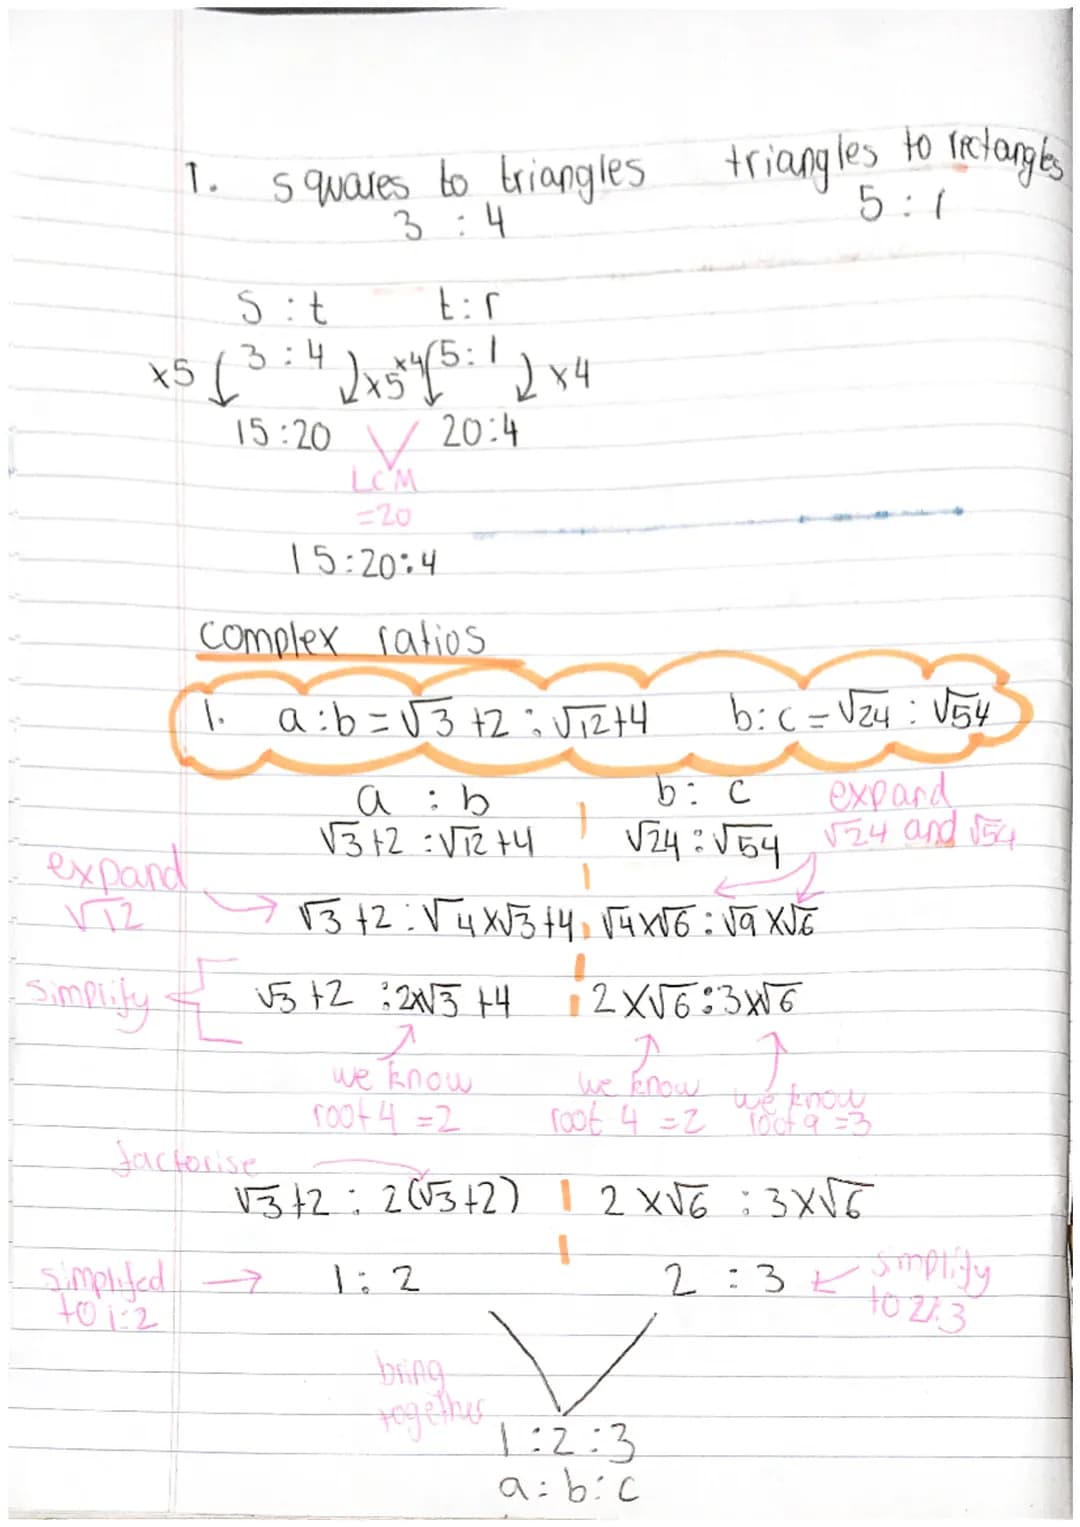 1. squares to triangles triangles to rectangles
3 : 4 5 : 1
S : t t : r
x5 3 : 4 x5 x4 5 : 1 x4
15 : 20 20 : 4
LCM
=20
15 : 20 : 4
complex ratios
1. a : b = √3 +2 : √12+4 b : c = √24 : √54
a : b b : c expand
√3+2 : √12 +4 √24 : √54 √24 and √54
expand
√12 √3 +2 : √4 x√3 +4 √4x√6 : √9 x√6
simplify √3 +2 : 2x√3 +4 2 x√6 : 3x√6
we know we know we know
root 4 =2 root 4 =2 root 9 =3
factorise
√3+2 : 2(√3+2) 2 x√6 : 3x√6
simplifed 1 : 2 2 : 3 simplify
to 1:2 to 2:3
bring
together
1 : 2 : 3
a : b : c